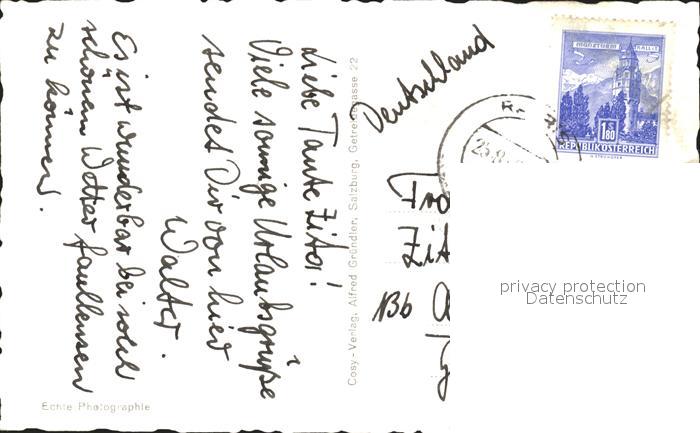 Liebe Tante Zita!
Viele sonnige Urlaubsgrüße
sendet Dir von hier
Walter.
Es ist wunderbar bei solch
schönem Wetter faullensen
zu können.
Echte Photographie
Cosy-Verlag, Alfred Gründler, Salzburg, Getreidegasse 22
Deutschland
1.80
S
REPUBLIK ÖSTERREICH
Zit
Bb
privacy protection
Datenschutz